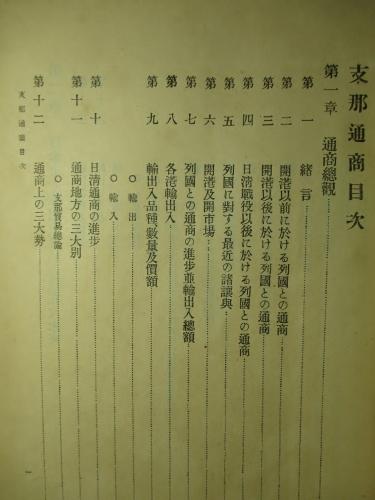 支那通商目次
第一章　通商總觀
第一　緒言
第二　開港以前に於ける列國との通商
第三　開港以後に於ける列國との通商
第四　日淸戰役以後に於ける列國との通商
第五　列國に對する最近の諸讓與
第六　開港及開市場
第七　列國との通商の進步並輸出入總額
第八　各港輸出入
第九　輸出入品種、數量及價額
○輸出
○輸入
第十　日淸通商の進步
第十一　通商地方の三大別
○支那貿易總論
第十二　通商上の三大勢
支那通商目次
一